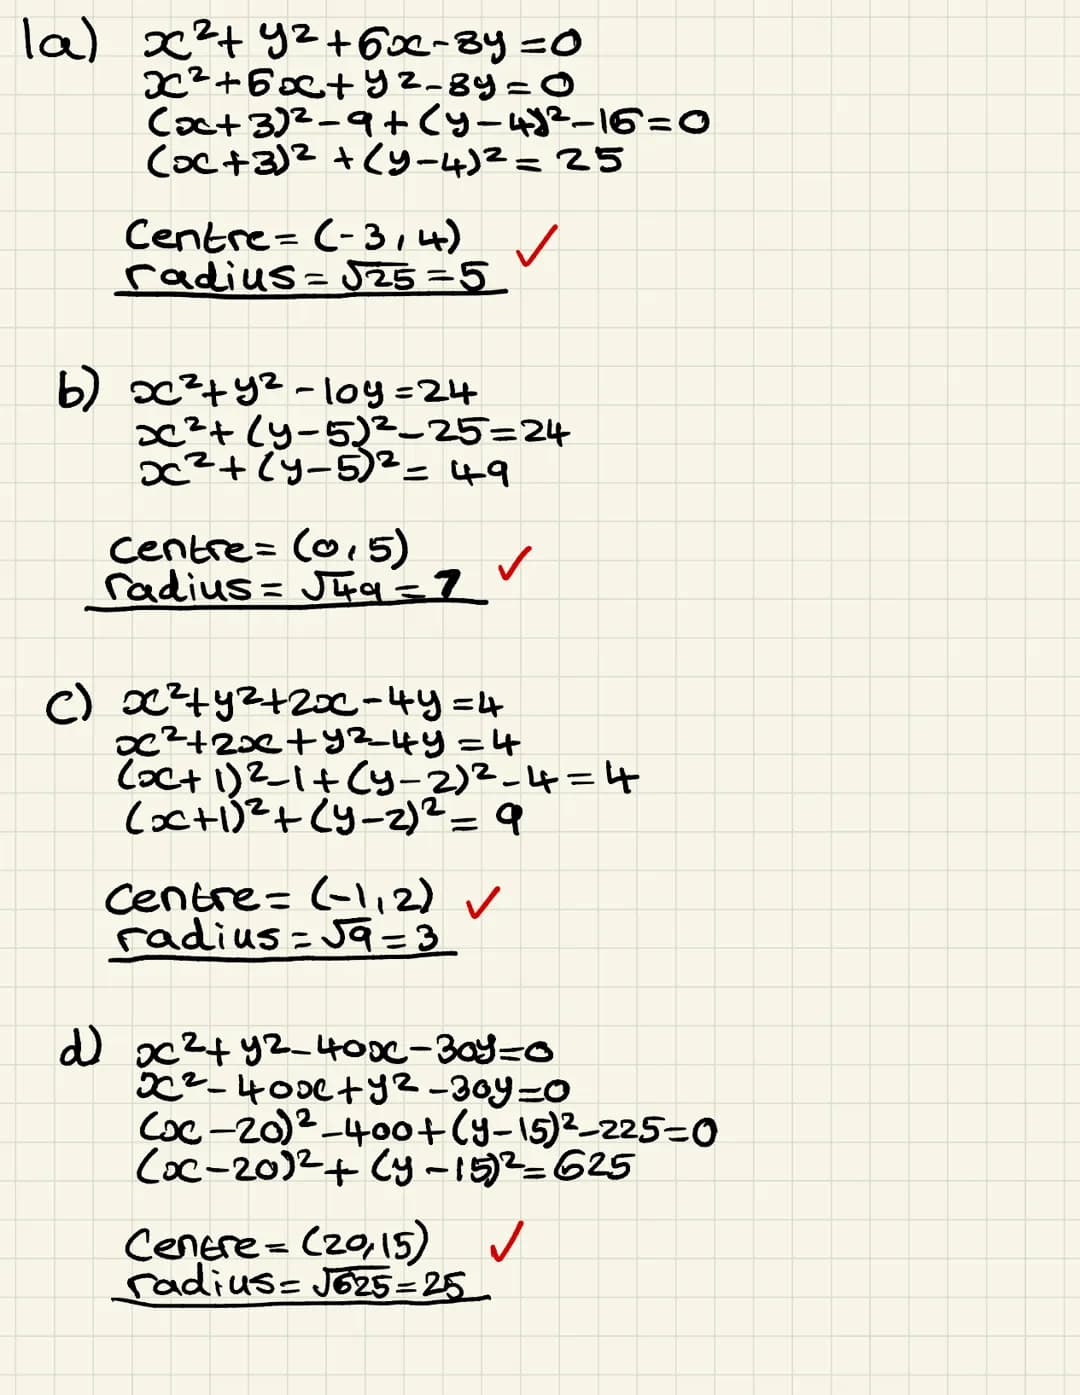 1a) x²+y²+6x-8y=0
x²+6x+y²-8y=0
(x+3)²-9+(y-4)²-16=0
(x+3)²+(y-4)²=25
Centre=(-3,4) ✓
radius=√25=5
b) x²+y²-10y=24
x²+(y-5)²-25=24
x²+(y-5)²=49
Centre=(0,5) ✓
radius=√49=7
c) x²+y²+2x-4y=4
x²+2x+y²-4y=4
(x+1)²-1+(y-2)²-4=4
(x+1)²+(y-2)²=9
Centre=(-1,2) ✓
radius=√9=3
d) x²+y²-40x-30y=0
x²-40x+y²-30y=0
(x-20)²-400+(y-15)²-225=0
(x-20)²+(y-15)²=625
Centre=(20,15) ✓
radius=√625=25